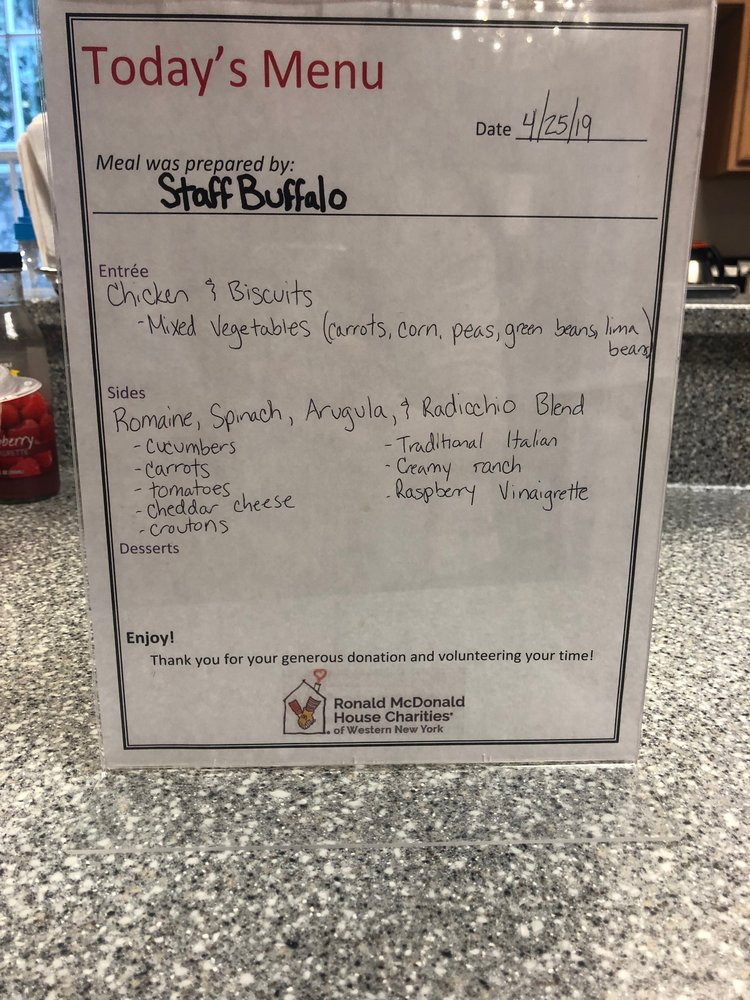 Today's Menu
Date 4/25/19
Meal was prepared by:
Staff Buffalo
Entrée
Chicken & Biscuits
- Mixed Vegetables (carrots, corn, peas, green beans, lima
beans)
Sides
Romaine, Spinach, Arugula, & Radicchio Blend
- Cucumbers
- Traditional Italian
- carrots
- Creamy ranch
- tomatoes
- Raspberry Vinaigrette
- Cheddar cheese
- Croutons
Desserts
Enjoy!
Thank you for your generous donation and volunteering your time!
Ronald McDonald
House Charities®
of Western New York